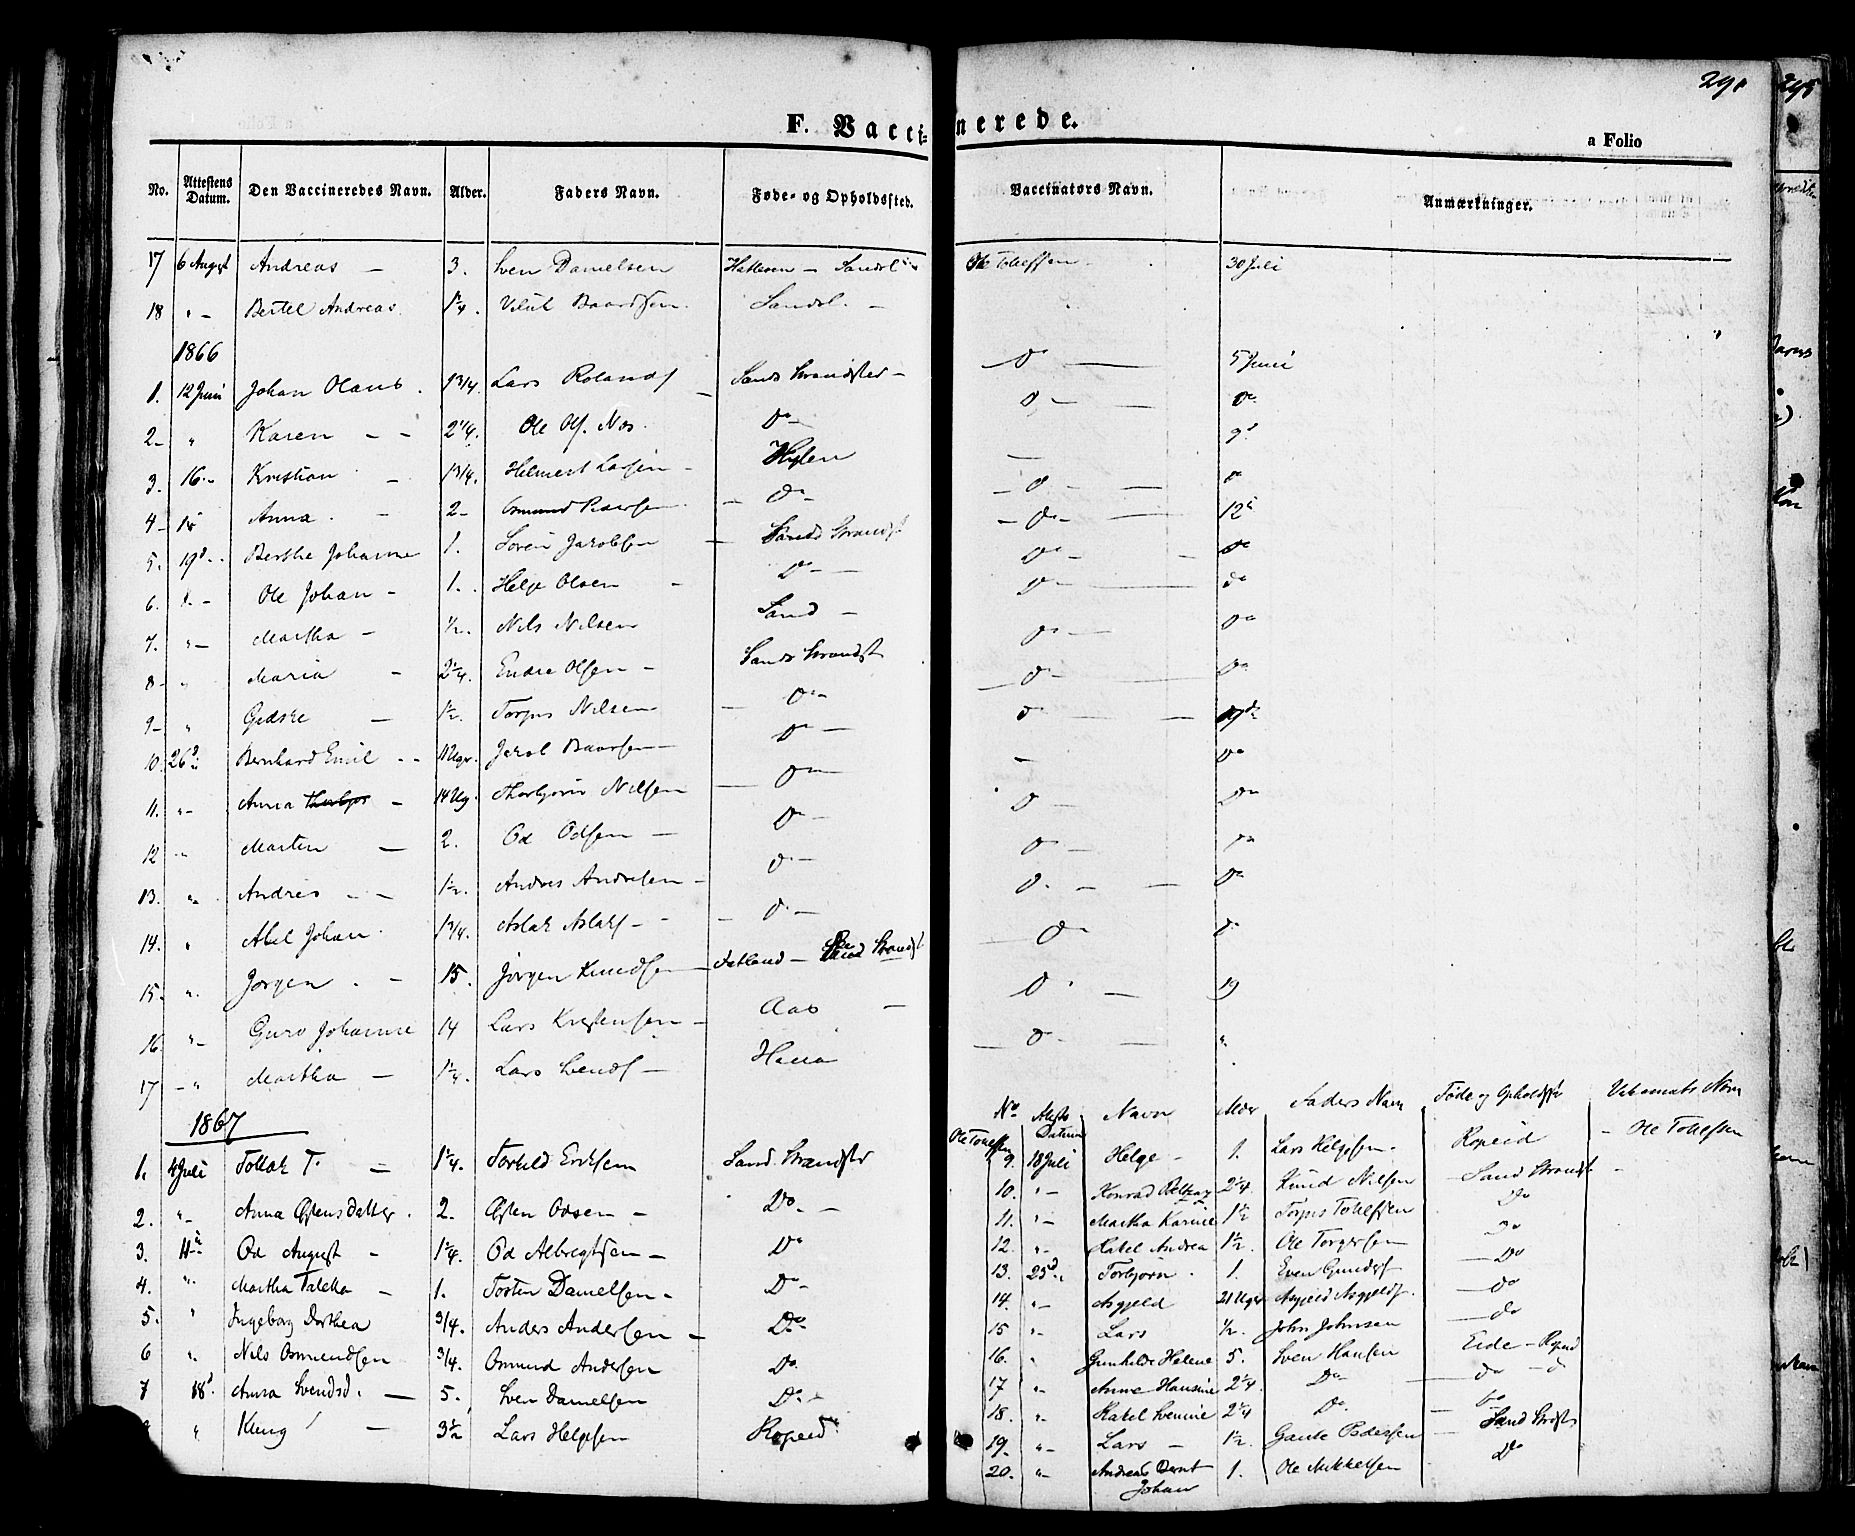 291
F. Vaccinerede.
a Folio
No. Attestens Datum. Den Vaccineredes Navn. Alder. Faders Navn. Føde- og Opholdssted. Vaccinators Navn. Anmærkninger.
17 6 August Andreas — 3. Sven Danielsen Ole Tollefsen 30 Juli
18 " — Bertel Andreas 1¼. Baardsen Sandsl. —
1866
1. 12 Juni Johan Olaus. 1 3/4. Lars Rolands Sands Strandsted — Do — 5 Juni
2 — " Karen — — 2 1/4. Ole Ols. Næs. Do — Do — Do
3. 16. — Kristian — 1 3/4. Helmert Larsen — Hylen — 9d
4 — Anna. — 2 — Osmund — Do — — Do — Do
5. 19d. Berthe Johanne 1. Soren Jacobsen — Sands Strandst — Do — 12t
6. " — Ole Johan — 1. Helge Olsen — Do — Do — Do
7. " — Martha — 1/2. Nils Nilsen Sand — Do — Do
8 — " Maria — 2 1/4. Endre Olsen — Sands Strandst Do — Do
9 — " Gidske — 1½. Torjus Nilsen — Do — Do — Do
10. 26d Bernhard Emil — 11 Uger. Jacob Baarsen — Do — Do —
11. " — Anna — 14 Ug. Thorbjørn Nilsen — Do — Do
12 " Marten — 2. Od Odsen — Do — Do — Do
13. " Andres — — 1½. Andres Andresen — Do — Do — Do
14. " Abel Johan. 1 3/4. Aslak Aslaks — — Do — Do — Do
15. " Jørgen. — 15. Jørgen Knudsen — Fatland — Sand Strandst Do Do
16. " — Guro Johanne 14 Lars Kristensen — Aas — Do — 19
17 — " Martha — 1¼. Lars Svends — — Do — "
1867
1. 4 Juli Tollak T. — 1¼. Torkild Eriksen Sand Strandsted Ole Tollefsen
2. " — Anna Østensdatter. 2. Østen Odsen — Do. —
3. 11te Od August — 1¼. Od Albregtsen — Do
4. " Martha — 1. Tosten Danielsen — Do —
5. " Ingebog Dorthea 3/4. Anders Andersen — Do
6 " Nils Osmundsen 3/4. Osmund Andersen Do.
7 18d Anna Svendsd. — 5. Sven Danielsen Do. —
" — 3½ Lars Helgesen Ropeid
No Attests Datum Navn Alder Faders Navn Føde og Opholdsst Navn
9. 18 Juli Helge — 1. Lars Helgesen — Ropeid — Ole Tollefsen
10. " — Konrad 2 1/4. Knud Nilsen — Sand Strandst —
11. " — Martha Karine 1½ Torjus Tollefsen Do
12. " — Rakel Andrea 1½. Ole Torgersen Do
13. 25d " Torbjorn. 1. Even — Do
14. " — Asgjeld 21 Uger Asgjeld Asgjelds. — Do
15 " — Lars 1/2. John Johnsen — Do
16. " Gunhilde Helene 5. Sven Hansen Eide — Ropeid
17 " — Anne Hansine 2 1/4. Do — Do — Do
18. " — Rakel 2 1/4 Do. — Do
19. " — Lars — 1½. Gaute Pedersen — Sand Strdst
20. " — Andreas Bernt Johan 1. Ole Mikkelsen Do
295